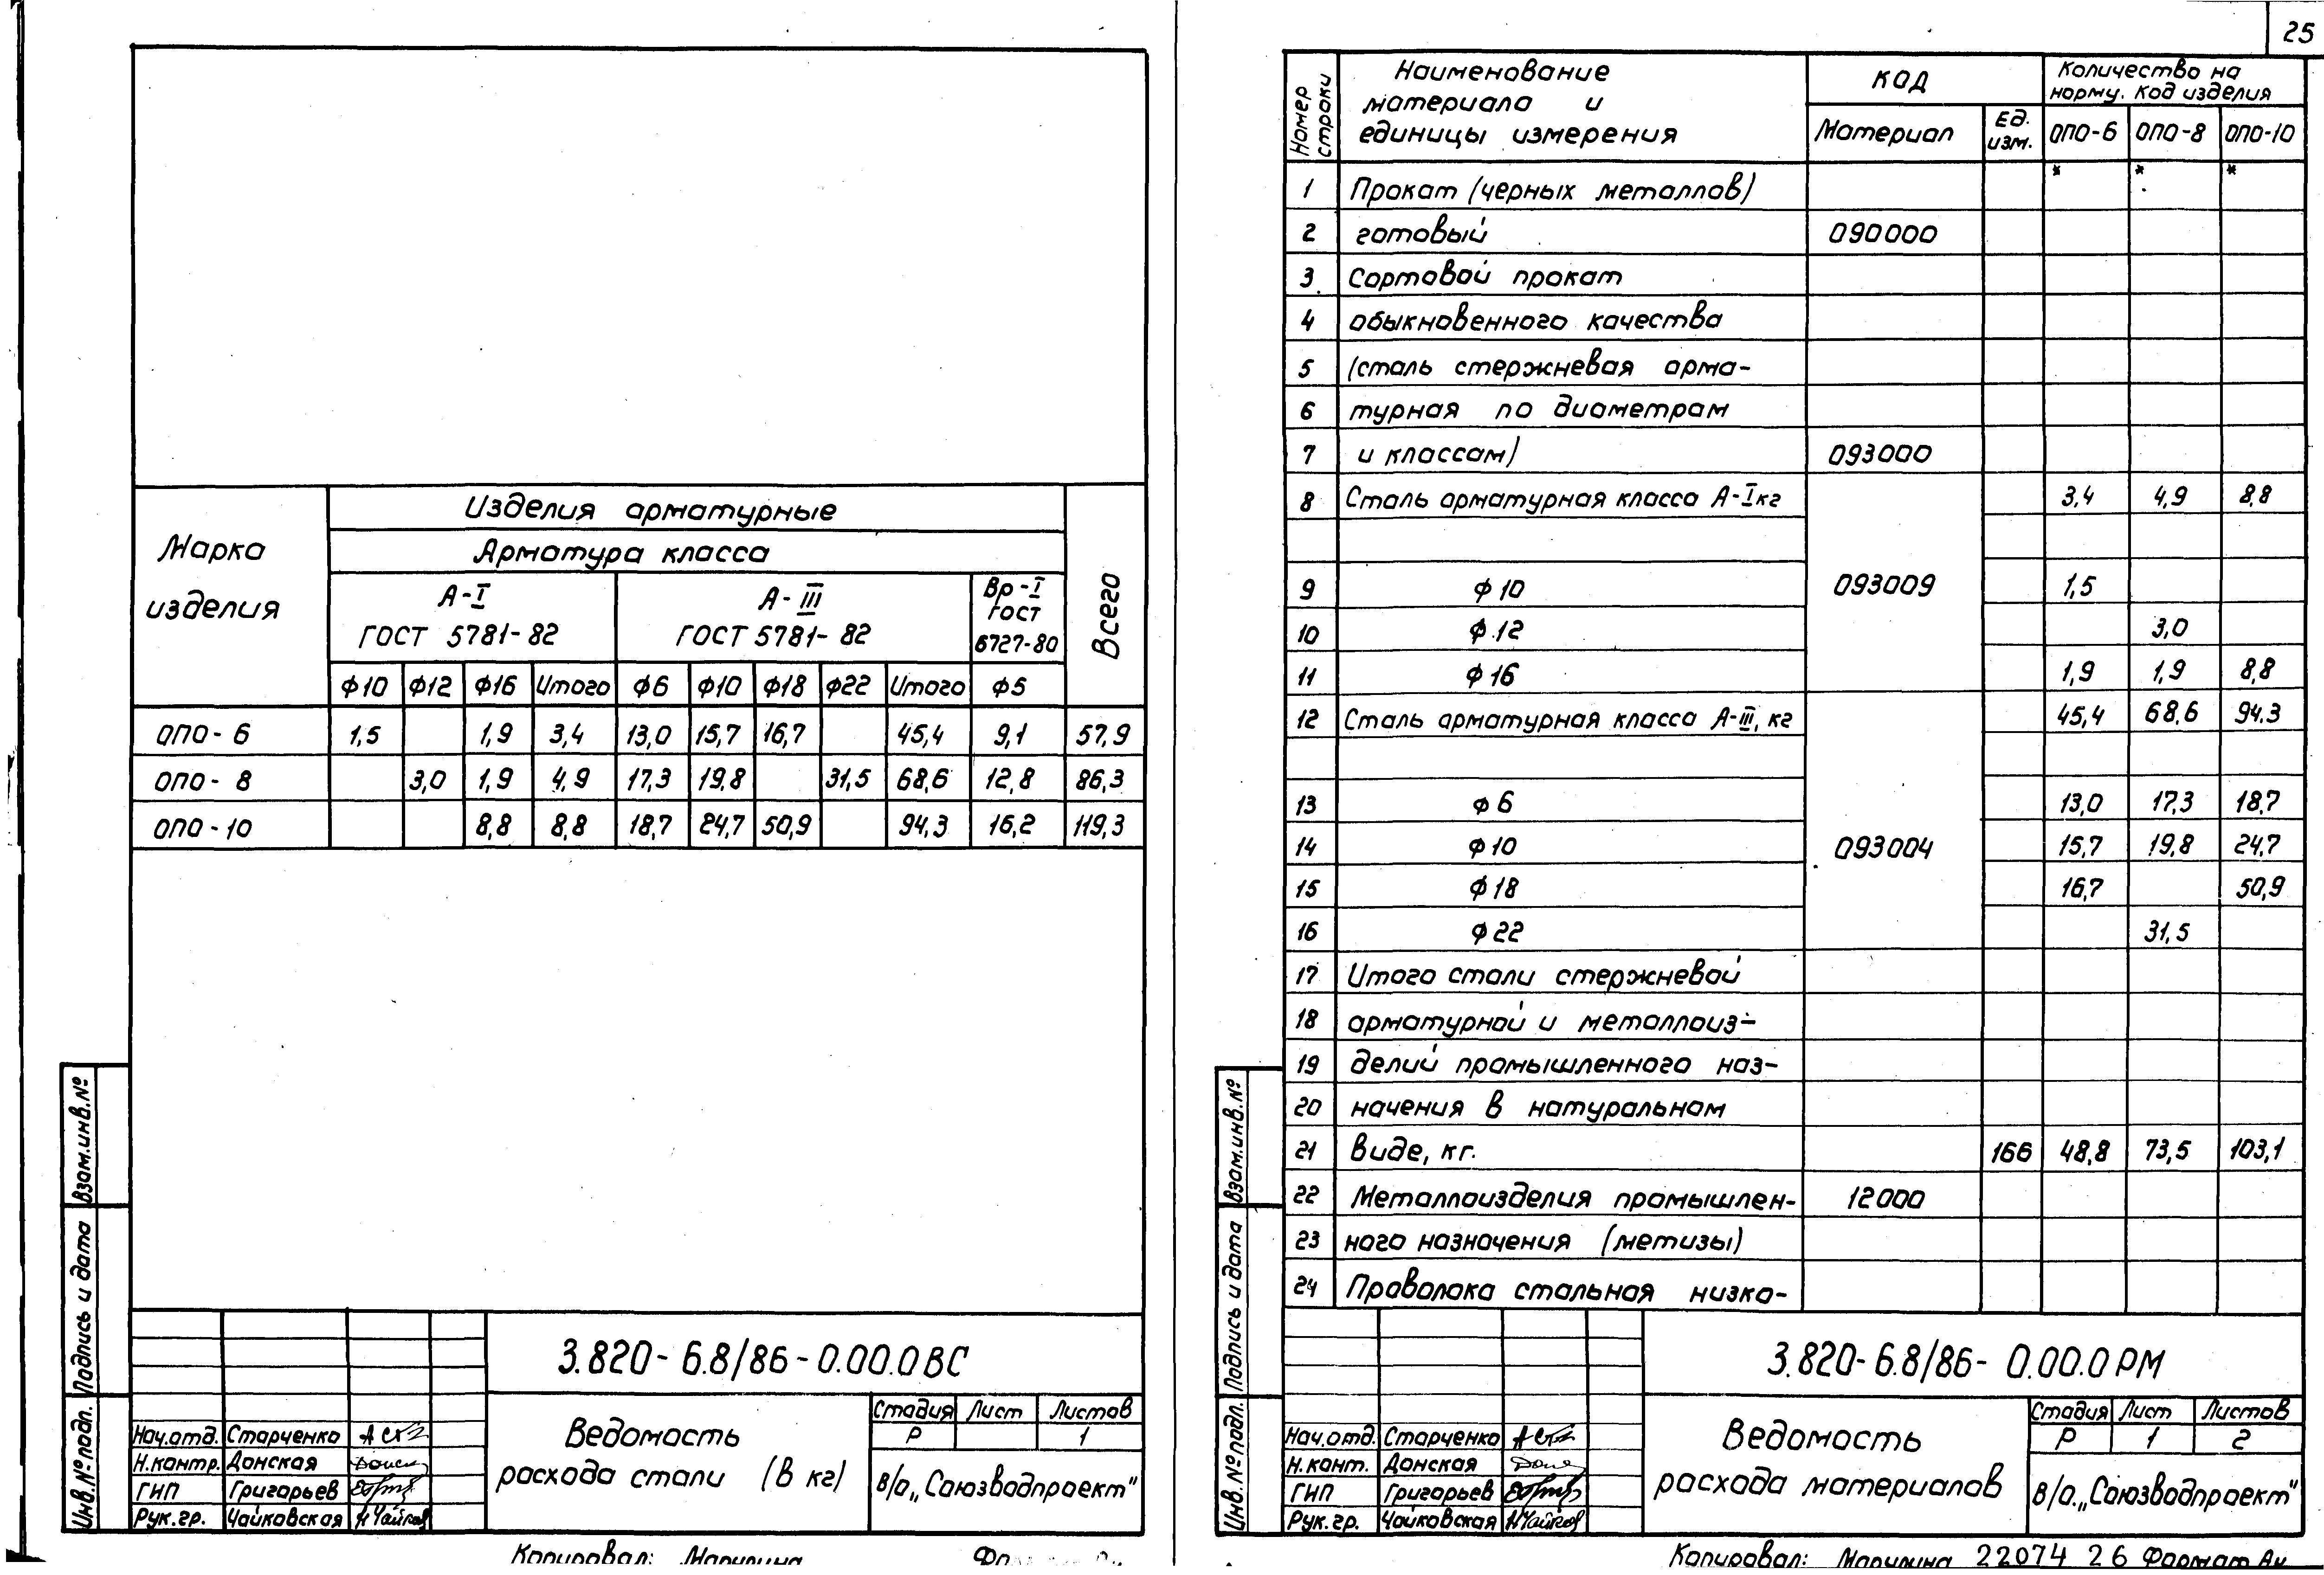 25
Марка изделия
Изделия арматурные
Всего
Арматура класса
А-I ГОСТ 5781-82
А-III ГОСТ 5781-82
Вр-I ГОСТ 6727-80
ф10 ф12 ф16 Итого ф6 ф10 ф18 ф22 Итого ф5
ОПО-6 1,5 1,9 3,4 13,0 15,7 16,7 45,4 9,1 57,9
ОПО-8 3,0 1,9 4,9 17,3 19,8 31,5 68,6 12,8 86,3
ОПО-10 8,8 8,8 18,7 24,7 50,9 94,3 16,2 119,3
Взам.инв.№
Подпись и дата
Инв.№подл.
3.820-6.8/86-0.00.0ВС
Нач.отд. Старченко
Н.контр. Донская
ГИП Григорьев
Рук.гр. Чайковская
Ведомость
расхода стали (в кг)
Стадия Лист Листов
Р 1
В/О „Союзводпроект"
Копировал: Марилина
Номер строки
Наименование
материала и
единицы измерения
КОД
Количество на
норму. Код изделия
Материал Ед. изм. ОПО-6 ОПО-8 ОПО-10
1 Прокат (черных металлов) * * *
2 готовый 090000
3 Сортовой прокат
4 обыкновенного качества
5 (сталь стержневая арма-
6 турная по диаметрам
7 и классам) 093000
8 Сталь арматурная класса А-I кг 3,4 4,9 8,8
9 ф10 093009 1,5
10 ф.12 3,0
11 ф16 1,9 1,9 8,8
12 Сталь арматурная класса А-III, кг 45,4 68,6 94.3
13 ф6 13,0 17,3 18,7
14 ф10 093004 15,7 19,8 24,7
15 ф18 16,7 50,9
16 ф22 31,5
17 Итого стали стержневой
18 арматурной и металлоиз-
19 делий промышленного наз-
20 начения в натуральном
21 виде, кг. 166 48,8 73,5 103,1
22 Металлоизделия промышлен- 12000
23 ного назначения (метизы)
24 Проволока стальная низко-
Взам.инв.№
Подпись и дата
Инв.№подл.
3.820-6.8/86-0.00.0РМ
Нач.отд. Старченко
Н.конт. Донская
ГИП Григорьев
Рук.гр. Чайковская
Ведомость
расхода материалов
Стадия Лист Листов
Р 1 2
В/О „Союзводпроект"
Копировал: Марилина 22074 26 Формат А4